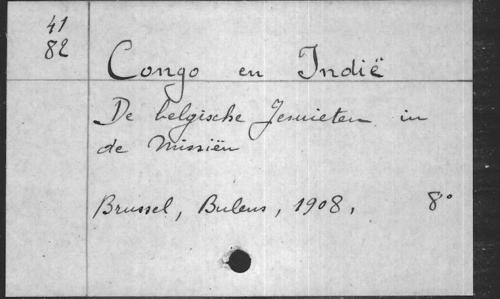 41
82
Congo en Indië
De belgische Jesuieten in
de Missiën
Brussel, Bulens, 1908, 8°